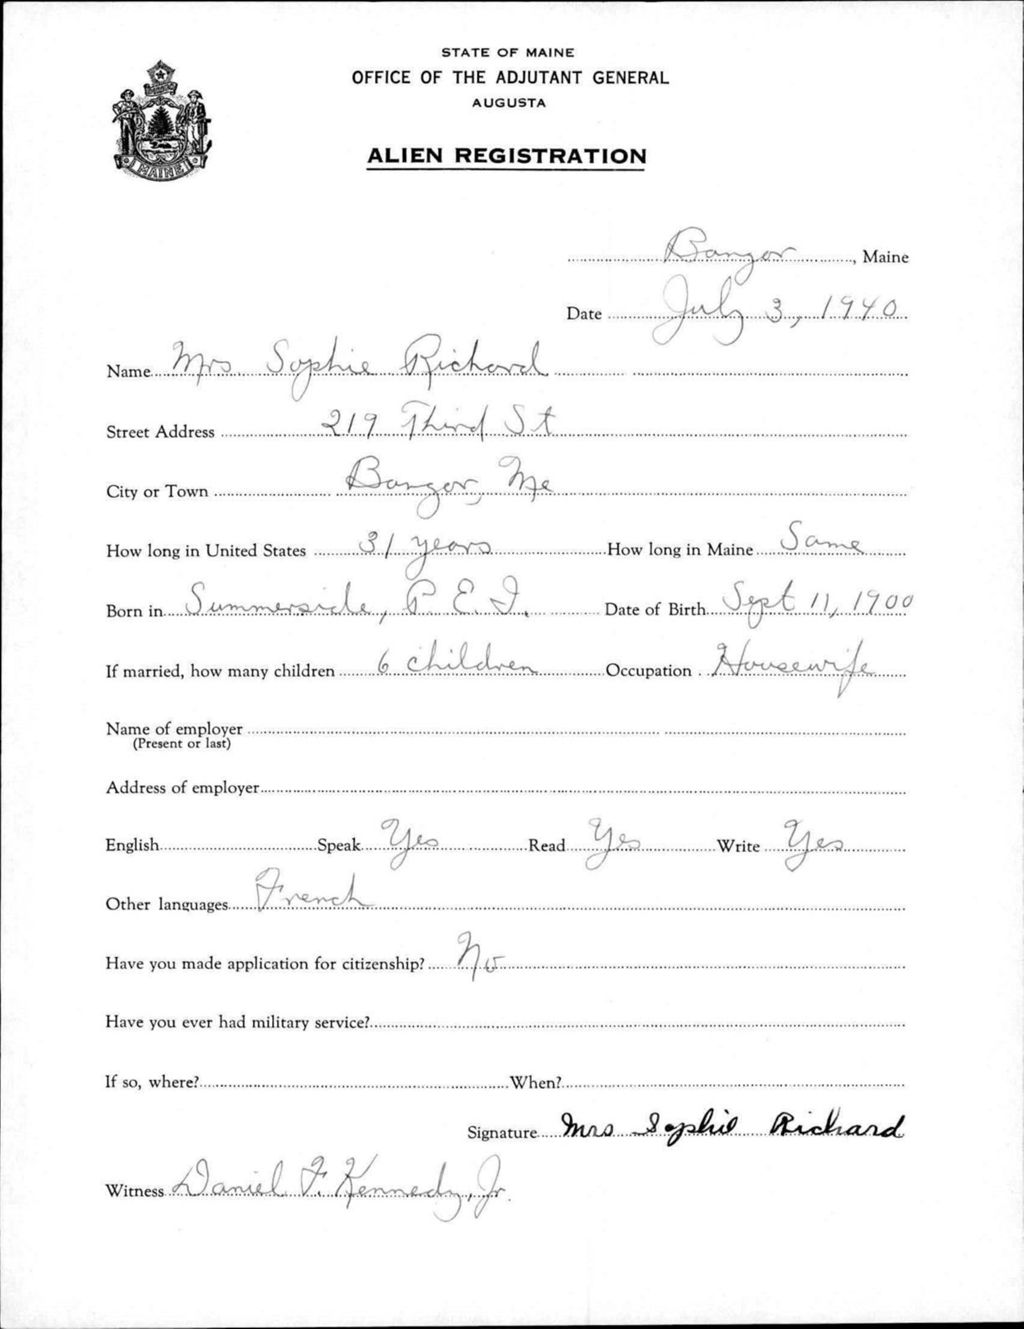 STATE OF MAINE
OFFICE OF THE ADJUTANT GENERAL
AUGUSTA
ALIEN REGISTRATION
MAINE
Bangor, Maine
Date July 3, 1940
Name Mrs Sophie Richard
Street Address 219 Third St
City or Town Bangor, Me
How long in United States 31 years How long in Maine Same
Born in Summerside, P. E. I. Date of Birth Sept 11, 1900
If married, how many children 6 children Occupation Housewife
Name of employer
(Present or last)
Address of employer
English Speak Yes Read Yes Write Yes
Other languages French
Have you made application for citizenship? No
Have you ever had military service?
If so, where? When?
Signature Mrs Sophie Richard
Witness Daniel F. Kennedy, Jr.